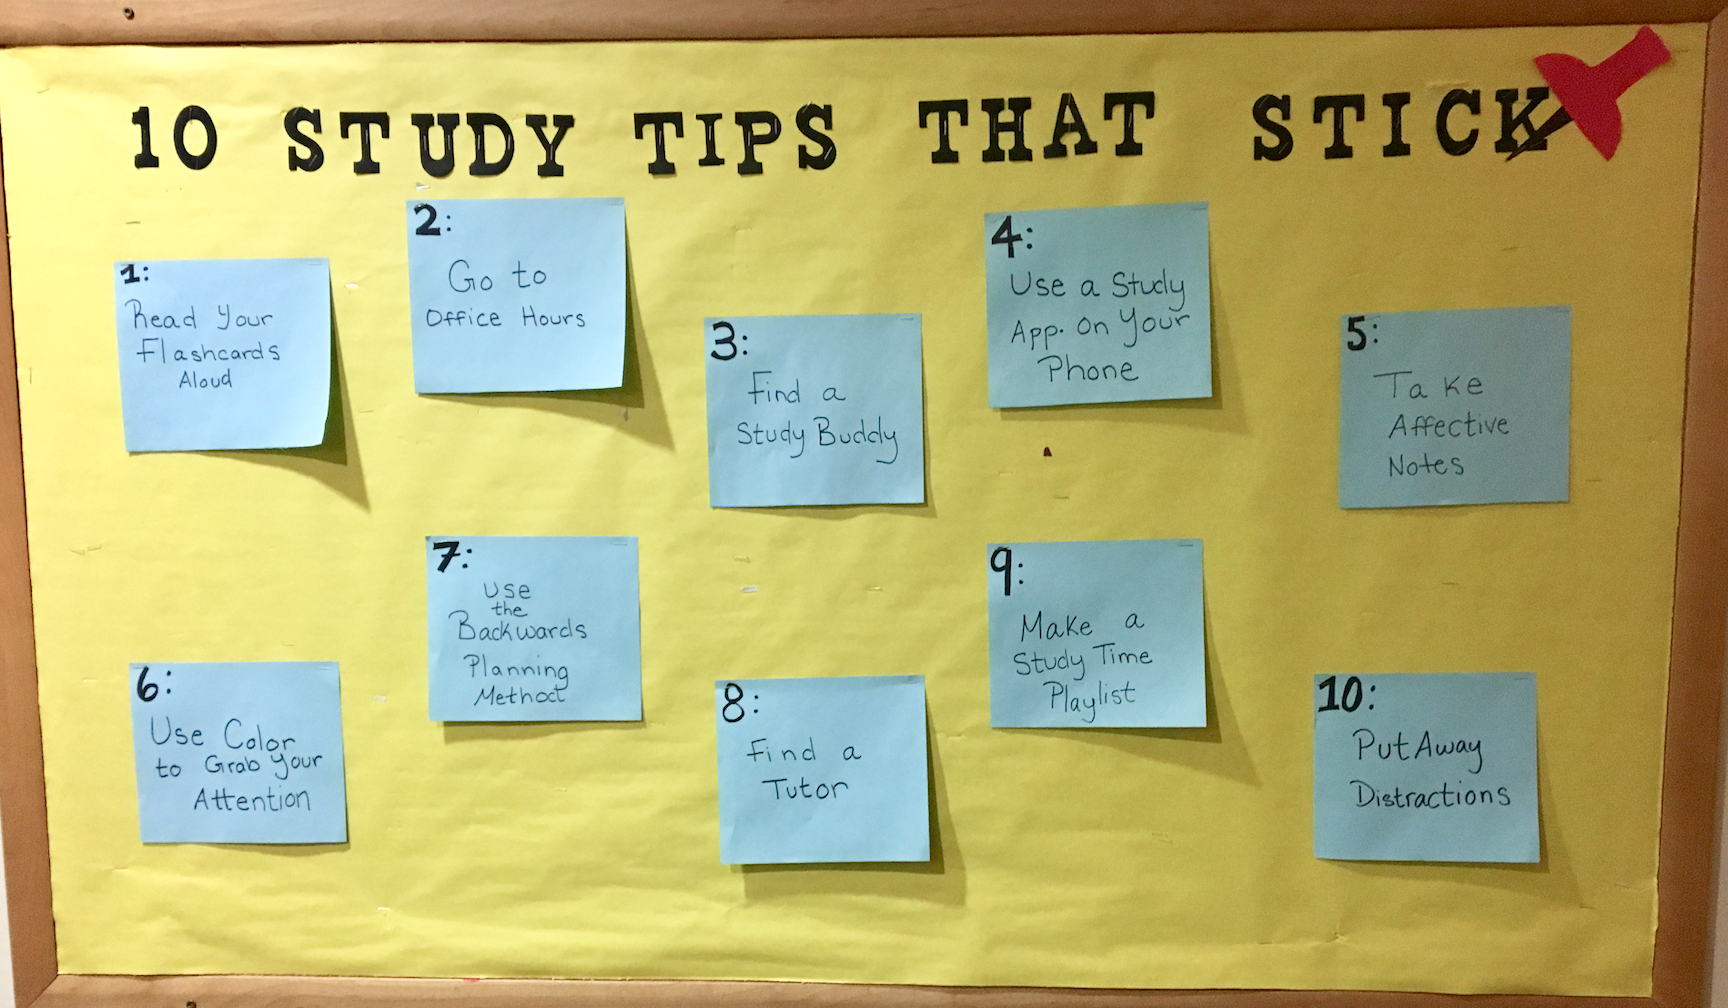 10 STUDY TIPS THAT STICK
1:
Read Your
Flashcards
Aloud
2:
Go to
Office Hours
3:
Find a
Study Buddy
4:
Use a Study
App. on Your
Phone
5:
Take
Affective
Notes
6:
Use Color
to Grab Your
Attention
7:
Use
the
Backwards
Planning
Method
8:
Find a
Tutor
9:
Make a
Study Time
Playlist
10:
Put Away
Distractions